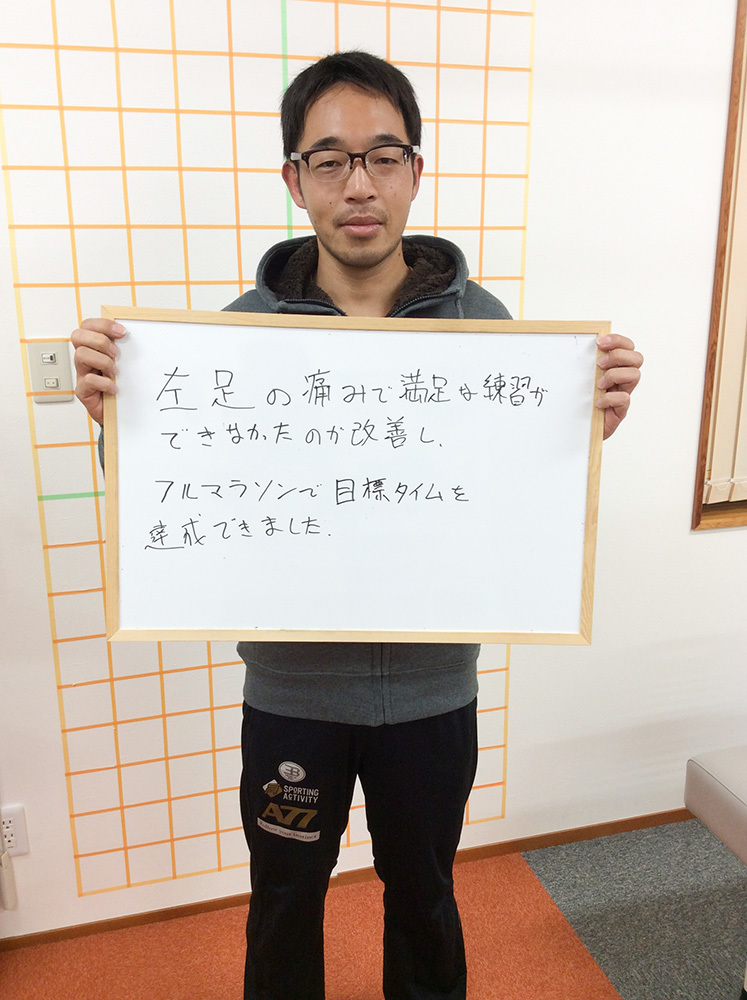 左足の痛みで満足な練習が
できなかったのが改善し、
フルマラソンで目標タイムを
達成できました.
B
SPORTING
ACTIVITY
A77